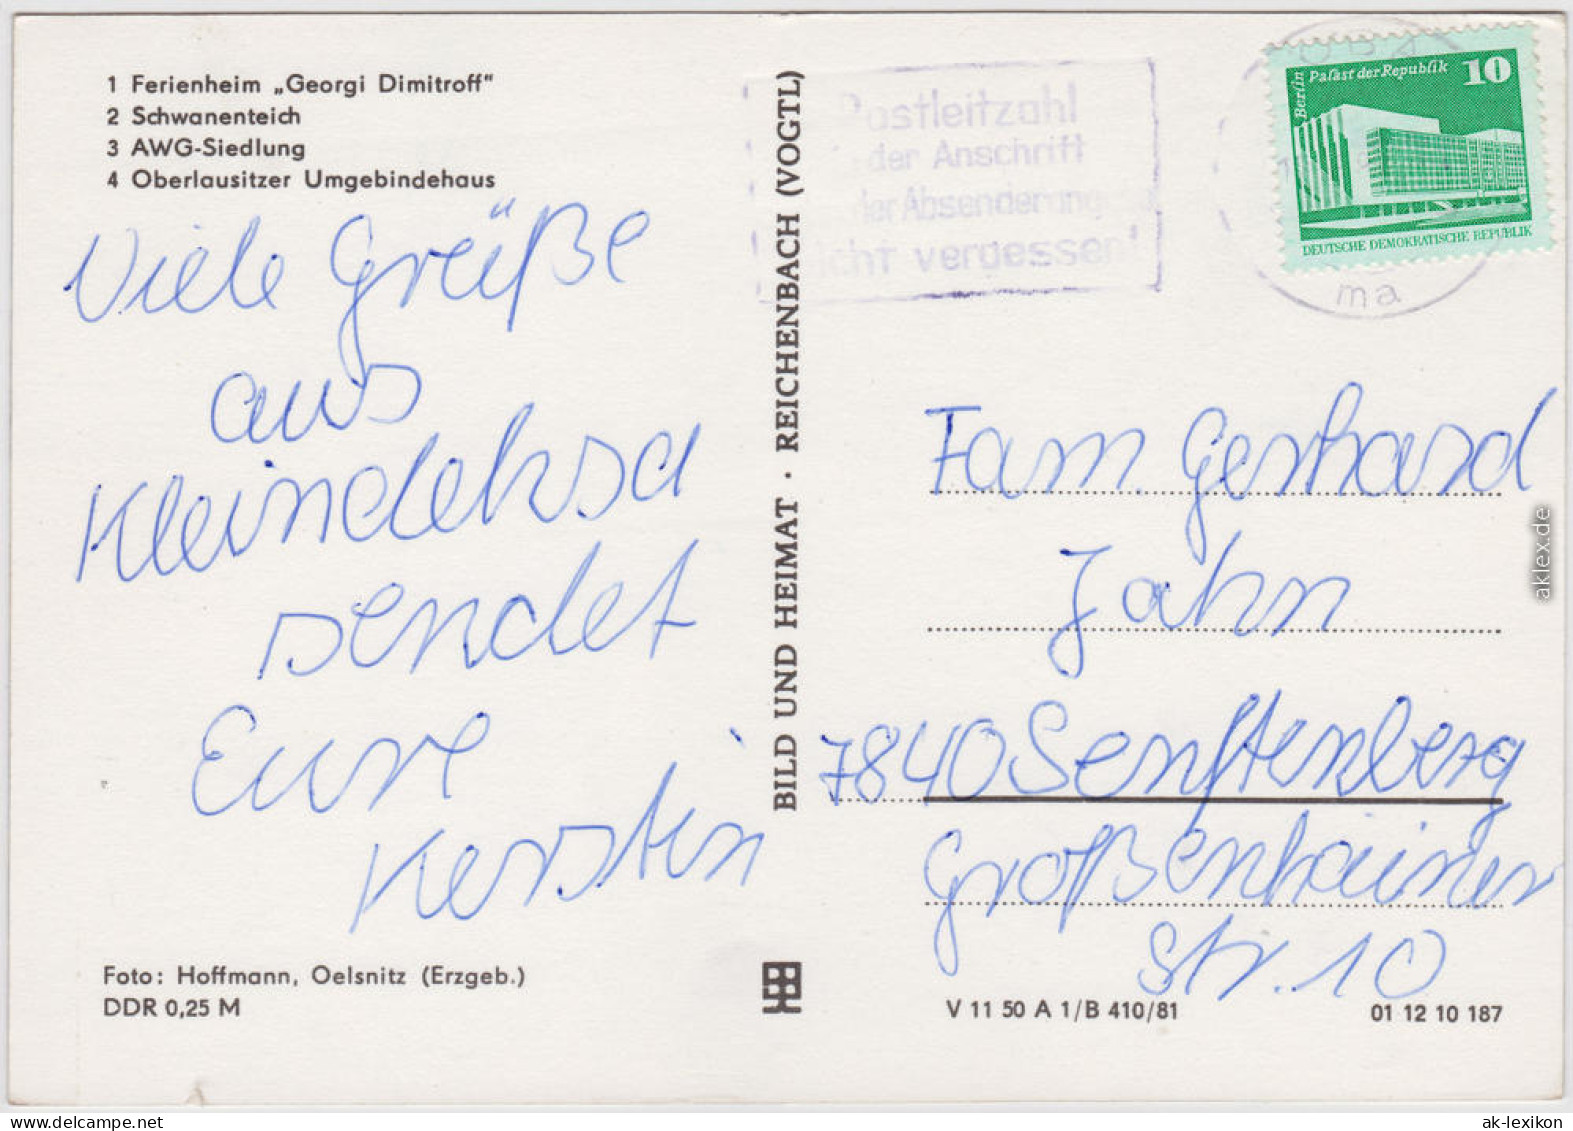 1 Ferienheim „Georgi Dimitroff“
2 Schwanenteich
3 AWG-Siedlung
4 Oberlausitzer Umgebindehaus
Viele Grüße
aus
Kleindehsa
sendet
Eure
Kerstin
Foto: Hoffmann, Oelsnitz (Erzgeb.)
DDR 0,25 M
BILD UND HEIMAT · REICHENBACH (VOGTL)
Postleitzahl
der Anschrift
der Absenderangabe
nicht vergessen!
Berlin
Palast der Republik 10
DEUTSCHE DEMOKRATISCHE REPUBLIK
ma
Fam. Gerhard
Jahn
7840 Senftenberg
Großenhainer
Str. 10
V 11 50 A 1/B 410/81
01 12 10 187
aklex.de
ak-lexikon